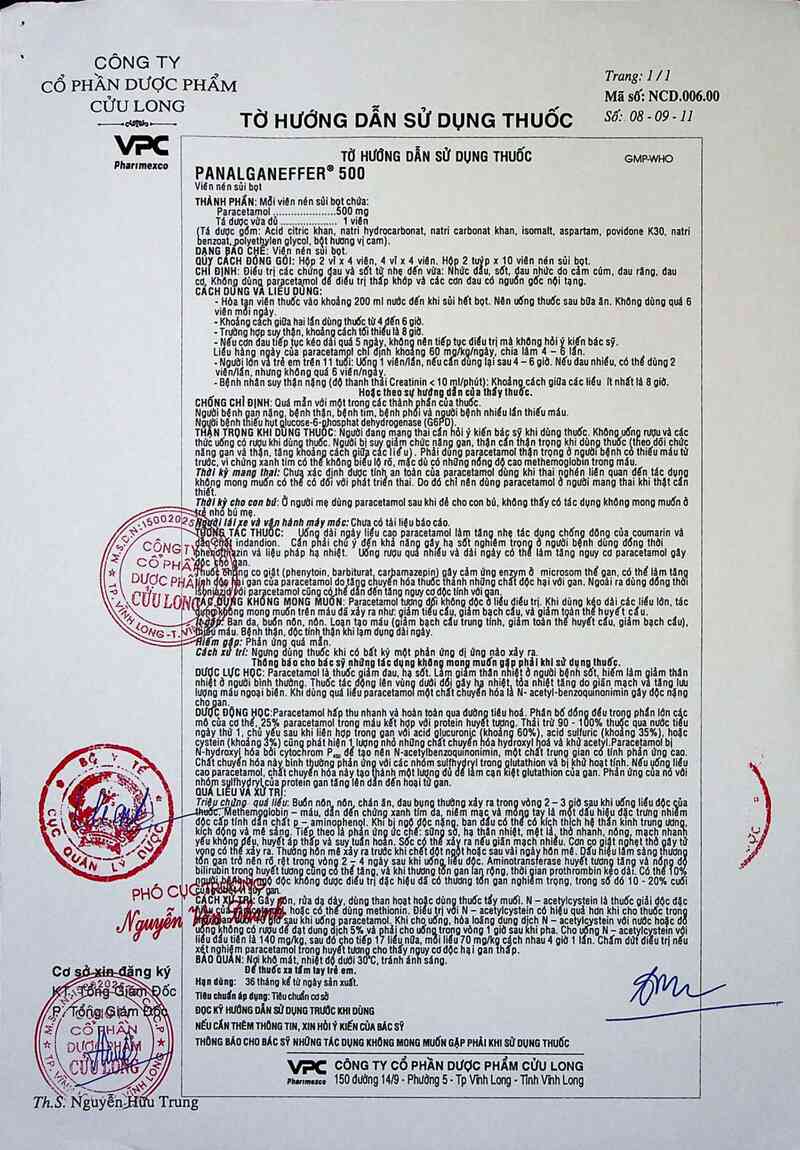 CÔNG TY
CỔ PHẦN DƯỢC PHẨM
CỬU LONG
VPC
Pharimexco
Trang: 1 / 1
Mã số: NCD.006.00
Số: 08 - 09 - 11
TỜ HƯỚNG DẪN SỬ DỤNG THUỐC
TỜ HƯỚNG DẪN SỬ DỤNG THUỐC
GMP-WHO
PANALGANEFFER® 500
Viên nén sủi bọt
THÀNH PHẦN: Mỗi viên nén sủi bọt chứa:
Paracetamol .....................500 mg
Tá dược vừa đủ ................... 1 viên
(Tá dược gồm: Acid citric khan, natri hydrocarbonat, natri carbonat khan, isomalt, aspartam, povidone K30, natri
benzoat, polyethylen glycol, bột hương vị cam).
DẠNG BÀO CHẾ: Viên nén sủi bọt.
QUY CÁCH ĐÓNG GÓI: Hộp 2 vỉ x 4 viên, 4 vỉ x 4 viên. Hộp 2 tuýp x 10 viên nén sủi bọt.
CHỈ ĐỊNH: Điều trị các chứng đau và sốt từ nhẹ đến vừa: Nhức đầu, sốt, đau nhức do cảm cúm, đau răng, đau
cơ. Không dùng paracetamol để điều trị thấp khớp và các cơn đau có nguồn gốc nội tạng.
CÁCH DÙNG VÀ LIỀU DÙNG:
- Hòa tan viên thuốc vào khoảng 200 ml nước đến khi sủi hết bọt. Nên uống thuốc sau bữa ăn. Không dùng quá 6
viên mỗi ngày.
- Khoảng cách giữa hai lần dùng thuốc từ 4 đến 6 giờ.
- Trường hợp suy thận, khoảng cách tối thiểu là 8 giờ.
- Nếu cơn đau tiếp tục kéo dài quá 5 ngày, không nên tiếp tục điều trị mà không hỏi ý kiến bác sỹ.
Liều hàng ngày của paracetamol chỉ định khoảng 60 mg/kg/ngày, chia làm 4 – 6 lần.
- Người lớn và trẻ em trên 11 tuổi: Uống 1 viên/lần, nếu cần dùng lại sau 4 – 6 giờ. Nếu đau nhiều, có thể dùng 2
viên/lần, nhưng không quá 6 viên/ngày.
- Bệnh nhân suy thận nặng (độ thanh thải Creatinin < 10 ml/phút): Khoảng cách giữa các liều ít nhất là 8 giờ.
Hoặc theo sự hướng dẫn của thầy thuốc.
CHỐNG CHỈ ĐỊNH: Quá mẫn với một trong các thành phần của thuốc.
Người bệnh gan nặng, bệnh thận, bệnh tim, bệnh phổi và người bệnh nhiều lần thiếu máu.
Người bệnh thiếu hụt glucose-6-phosphat dehydrogenase (G6PD).
THẬN TRỌNG KHI DÙNG THUỐC: Người đang mang thai cần hỏi ý kiến bác sỹ khi dùng thuốc. Không uống rượu và các
thức uống có rượu khi dùng thuốc. Người bị suy giảm chức năng gan, thận cần thận trọng khi dùng thuốc (theo dõi chức
năng gan và thận, tăng khoảng cách giữa các liều). Phải dùng paracetamol thận trọng ở người bệnh có thiếu máu từ
trước, vì chứng xanh tím có thể không biểu lộ rõ, mặc dù có những nồng độ cao methemoglobin trong máu.
Thời kỳ mang thai: Chưa xác định được tính an toàn của paracetamol dùng khi thai nghén liên quan đến tác dụng
không mong muốn có thể có đối với phát triển thai. Do đó chỉ nên dùng paracetamol ở người mang thai khi thật cần
thiết.
Thời kỳ cho con bú: Ở người mẹ dùng paracetamol sau khi đẻ cho con bú, không thấy có tác dụng không mong muốn ở
trẻ nhỏ bú mẹ.
Người lái xe và vận hành máy móc: Chưa có tài liệu báo cáo.
TƯƠNG TÁC THUỐC: Uống dài ngày liều cao paracetamol làm tăng nhẹ tác dụng chống đông của coumarin và
dẫn chất indandion. Cần phải chú ý đến khả năng gây hạ sốt nghiêm trọng ở người bệnh dùng đồng thời
phenothiazin và liệu pháp hạ nhiệt. Uống rượu quá nhiều và dài ngày có thể làm tăng nguy cơ paracetamol gây
độc cho gan.
Thuốc chống co giật (phenytoin, barbiturat, carbamazepin) gây cảm ứng enzym ở microsom thể gan, có thể làm tăng
tính độc hại gan của paracetamol do tăng chuyển hóa thuốc thành những chất độc hại với gan. Ngoài ra dùng đồng thời
isoniazid với paracetamol cũng có thể dẫn đến tăng nguy cơ độc tính với gan.
TÁC DỤNG KHÔNG MONG MUỐN: Paracetamol tương đối không độc ở liều điều trị. Khi dùng kéo dài các liều lớn, tác
dụng không mong muốn trên máu đã xảy ra như: giảm tiểu cầu, giảm bạch cầu, và giảm toàn thể huyết cầu.
Ít gặp: Ban da, buồn nôn, nôn. Loạn tạo máu (giảm bạch cầu trung tính, giảm toàn thể huyết cầu, giảm bạch cầu),
thiếu máu. Bệnh thận, độc tính thận khi lạm dụng dài ngày.
Hiếm gặp: Phản ứng quá mẫn.
Cách xử trí: Ngưng dùng thuốc khi có bất kỳ một phản ứng dị ứng nào xảy ra.
Thông báo cho bác sỹ những tác dụng không mong muốn gặp phải khi sử dụng thuốc.
DƯỢC LỰC HỌC: Paracetamol là thuốc giảm đau, hạ sốt. Làm giảm thân nhiệt ở người bệnh sốt, hiếm làm giảm thân
nhiệt ở người bình thường. Thuốc tác động lên vùng dưới đồi gây hạ nhiệt, tỏa nhiệt tăng do giãn mạch và tăng lưu
lượng máu ngoại biên. Khi dùng quá liều paracetamol một chất chuyển hóa là N- acetyl-benzoquinonimin gây độc nặng
cho gan.
DƯỢC ĐỘNG HỌC:Paracetamol hấp thu nhanh và hoàn toàn qua đường tiêu hoá. Phân bố đồng đều trong phần lớn các
mô của cơ thể, 25% paracetamol trong máu kết hợp với protein huyết tương. Thải trừ 90 - 100% thuốc qua nước tiểu
ngày thứ 1, chủ yếu sau khi liên hợp trong gan với acid glucuronic (khoảng 60%), acid sulfuric (khoảng 35%), hoặc
cystein (khoảng 3%) cũng phát hiện 1 lượng nhỏ những chất chuyển hóa hydroxyl hoá và khử acetyl.Paracetamol bị
N-hydroxyl hóa bởi cytochrom P450 để tạo nên N-acetylbenzoquinonimin, một chất trung gian có tính phản ứng cao.
Chất chuyển hóa này bình thường phản ứng với các nhóm sulfhydryl trong glutathion và bị khử hoạt tính. Nếu uống liều
cao paracetamol, chất chuyển hóa này tạo thành một lượng đủ để làm cạn kiệt glutathion của gan. Phản ứng của nó với
nhóm sulfhydryl của protein gan tăng lên dẫn đến hoại tử gan.
QUÁ LIỀU VÀ XỬ TRÍ:
Triệu chứng quá liều: Buồn nôn, nôn, chán ăn, đau bụng thường xảy ra trong vòng 2 – 3 giờ sau khi uống liều độc của
thuốc. Methemoglobin – máu, dẫn đến chứng xanh tím da, niêm mạc và móng tay là một dấu hiệu đặc trưng nhiễm
độc cấp tính dẫn chất p – aminophenol. Khi bị ngộ độc nặng, ban đầu có thể có kích thích hệ thần kinh trung ương,
kích động và mê sảng. Tiếp theo là phản ứng ức chế: sững sờ, hạ thân nhiệt, mệt lả, thở nhanh, nông, mạch nhanh
yếu không đều, huyết áp thấp và suy tuần hoàn. Sốc có thể xảy ra nếu giãn mạch nhiều. Cơn co giật nghẹt thở gây tử
vong có thể xảy ra. Thường hôn mê xảy ra trước khi chết đột ngột hoặc sau vài ngày hôn mê. Dấu hiệu lâm sàng thương
tổn gan trở nên rõ rệt trong vòng 2 – 4 ngày sau khi uống liều độc. Aminotransferase huyết tương tăng và nồng độ
bilirubin trong huyết tương cũng có thể tăng, và khi thương tổn gan lan rộng, thời gian prothrombin kéo dài. Có thể 10%
người bệnh bị ngộ độc không được điều trị đặc hiệu đã có thương tổn gan nghiêm trọng, trong số đó 10 - 20% cuối
cùng chết vì suy gan.
CÁCH XỬ TRÍ: Gây nôn, rửa dạ dày, dùng than hoạt hoặc dùng thuốc tẩy muối. N – acetylcystein là thuốc giải độc đặc
hoặc có thể dùng methionin. Điều trị với N – acetylcystein có hiệu quả hơn khi cho thuốc trong
giờ sau khi uống paracetamol. Khi cho uống, hòa loãng dung dịch N – acetylcystein với nước hoặc đồ
uống không có rượu để đạt dung dịch 5% và phải cho uống trong vòng 1 giờ sau khi pha. Cho uống N – acetylcystein với
liều đầu tiên là 140 mg/kg, sau đó cho tiếp 17 liều nữa, mỗi liều 70 mg/kg cách nhau 4 giờ 1 lần. Chấm dứt điều trị nếu
xét nghiệm paracetamol trong huyết tương cho thấy nguy cơ độc hại gan thấp.
BẢO QUẢN: Nơi khô mát, nhiệt độ dưới 30°C, tránh ánh sáng.
Để thuốc xa tầm tay trẻ em.
Hạn dùng: 36 tháng kể từ ngày sản xuất.
Tiêu chuẩn áp dụng: Tiêu chuẩn cơ sở
ĐỌC KỸ HƯỚNG DẪN SỬ DỤNG TRƯỚC KHI DÙNG
NẾU CẦN THÊM THÔNG TIN, XIN HỎI Ý KIẾN CỦA BÁC SỸ
THÔNG BÁO CHO BÁC SỸ NHỮNG TÁC DỤNG KHÔNG MONG MUỐN GẶP PHẢI KHI SỬ DỤNG THUỐC
VPC
Pharimexco
CÔNG TY CỔ PHẦN DƯỢC PHẨM CỬU LONG
150 đường 14/9 - Phường 5 - Tp Vĩnh Long - Tỉnh Vĩnh Long
CÔNG TY
CỔ PHẦN
DƯỢC PHẨM
CỬU LONG
BỘ Y TẾ
CỤC QUẢN LÝ DƯỢC
PHÓ CỤC TRƯỞNG
Nguyễn Văn Thanh
Cơ sở xin đăng ký
KT. Tổng Giám Đốc
P. Tổng Giám Đốc
CỔ PHẦN
DƯỢC PHẨM
CỬU LONG
Th.S. Nguyễn Hữu Trung